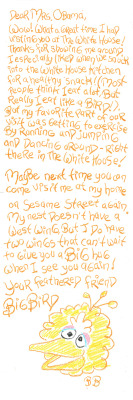 Dear Mrs. Obama,
Wow! What a great time I had
visiting you at the White House!
Thanks for showing me around.
I especially liked when we snuck
into the White House Kitchen
for a healthy snack! (Most
people think I eat a lot. But
Really I eat like a BIRD!).
But my favorite part of our
visit was getting to exercise
By Running and Jumping
and Dancing around - Right
there in the White House!
Maybe next time you can
come visit me at my home
on Sesame Street again.
My nest doesn't have a
West Wing. But I Do have
two wings that can't wait
to give you a Big hug
when I see you again!
Your feathered friend
BIG BIRD
BB